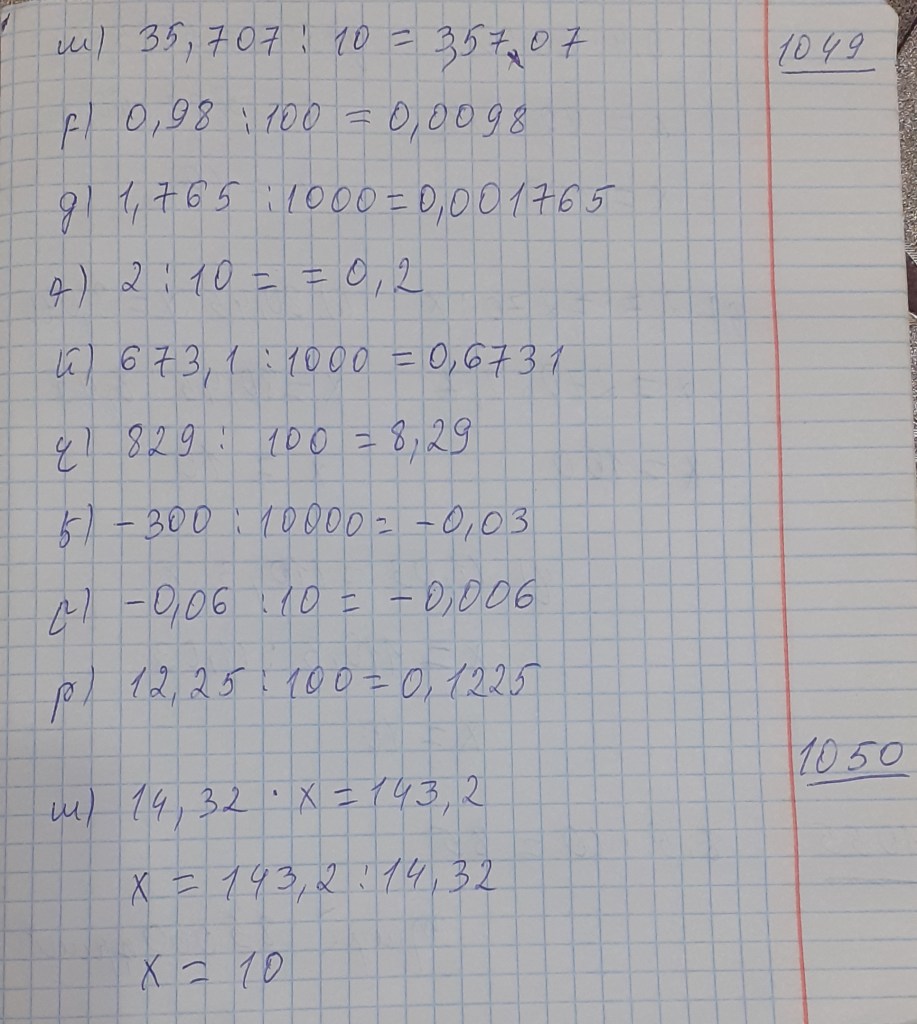 1049
ш) 35,707 : 10 = 3,5707
г) 0,98 : 100 = 0,0098
д) 1,765 : 1000 = 0,001765
2 : 10 = = 0,2
й) 673,1 : 1000 = 0,6731
ч) 829 : 100 = 8,29
б) -300 : 10000 = -0,03
с) -0,06 : 10 = -0,006
р) 12,25 : 100 = 0,1225
1050
ш) 14,32 · x = 143,2
x = 143,2 : 14,32
x = 10